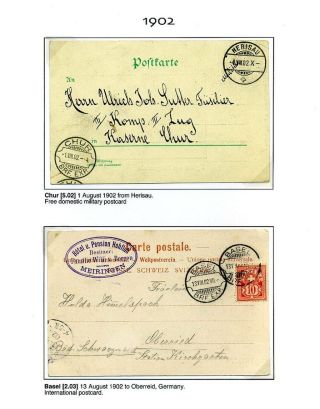 1902
Postkarte
HERISAU
1.VIII.02.X-
An
Herrn Ulrich Job. Sutter Füsilier
Komp. Zug
Kaserne Chur.
CHUR
1.VIII.02.
BRF. EXP.
Chur [5.02] 1 August 1902 from Herisau.
Free domestic military postcard
Carte postale.
Weltpostverein.
SUISSE SCHWEIZ SVIZZERA
Hôtel u. Pension
Besitzer:
MEIRINGEN
BASEL
13.VIII.02
BRF. EXP.
10
Fräulein
Hulda Himmelspach
Oberried
Bad. Schwarzwald
Basel [2.03] 13 August 1902 to Oberreid, Germany.
International postcard.